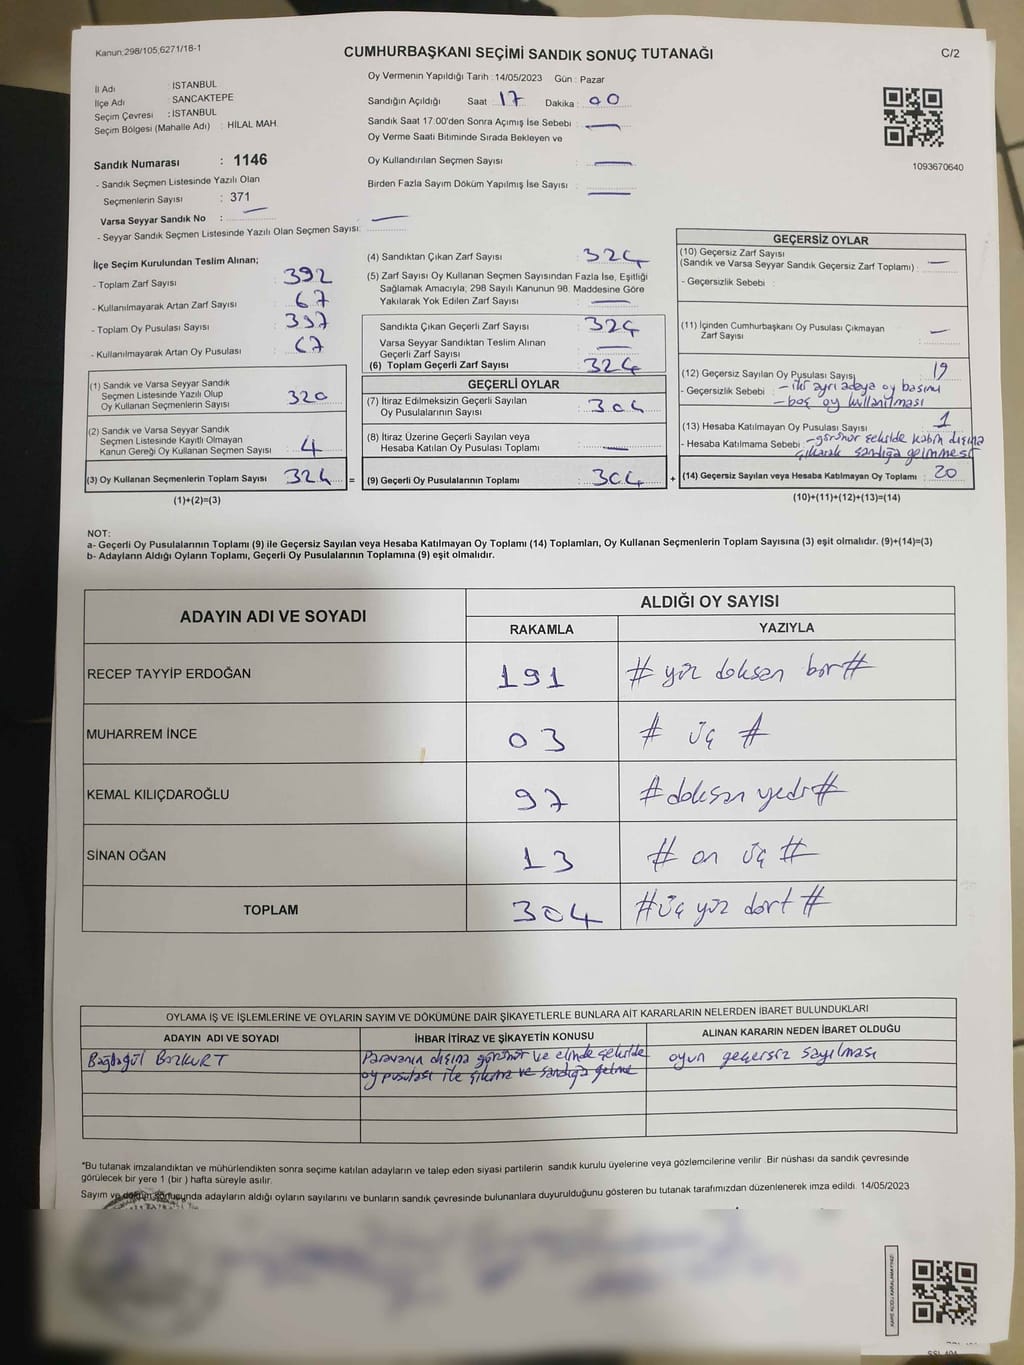 Kanun:298/105,6271/18-1
CUMHURBAŞKANI SEÇİMİ SANDIK SONUÇ TUTANAĞI
C/2
İl Adı : İSTANBUL
İlçe Adı : SANCAKTEPE
Seçim Çevresi : İSTANBUL
Seçim Bölgesi (Mahalle Adı) : HİLAL MAH.
Sandık Numarası : 1146
- Sandık Seçmen Listesinde Yazılı Olan
Seçmenlerin Sayısı : 371
Varsa Seyyar Sandık No : —
- Seyyar Sandık Seçmen Listesinde Yazılı Olan Seçmen Sayısı: —
Oy Vermenin Yapıldığı Tarih : 14/05/2023 Gün : Pazar
Sandığın Açıldığı Saat 17 Dakika : 00
Sandık Saat 17.00'den Sonra Açımış İse Sebebi : —
Oy Verme Saati Bitiminde Sırada Bekleyen ve
Oy Kullandırılan Seçmen Sayısı : —
Birden Fazla Sayım Döküm Yapılmış İse Sayısı : —
1093670640
İlçe Seçim Kurulundan Teslim Alınan;
- Toplam Zarf Sayısı : 392
- Kullanılmayarak Artan Zarf Sayısı : 67
- Toplam Oy Pusulası Sayısı : 397
- Kullanılmayarak Artan Oy Pusulası : 67
(1) Sandık ve Varsa Seyyar Sandık
Seçmen Listesinde Yazılı Olup
Oy Kullanan Seçmenlerin Sayısı : 320
(2) Sandık ve Varsa Seyyar Sandık
Seçmen Listesinde Kayıtlı Olmayan
Kanun Gereği Oy Kullanan Seçmen Sayısı : 4
(3) Oy Kullanan Seçmenlerin Toplam Sayısı : 324 =
(1)+(2)=(3)
(4) Sandıktan Çıkan Zarf Sayısı : 324
(5) Zarf Sayısı Oy Kullanan Seçmen Sayısından Fazla İse, Eşitliği
Sağlamak Amacıyla, 298 Sayılı Kanunun 98. Maddesine Göre
Yakılarak Yok Edilen Zarf Sayısı : —
Sandıkta Çıkan Geçerli Zarf Sayısı : 324
Varsa Seyyar Sandıktan Teslim Alınan
Geçerli Zarf Sayısı : —
(6) Toplam Geçerli Zarf Sayısı : 324
GEÇERLİ OYLAR
(7) İtiraz Edilmeksizin Geçerli Sayılan
Oy Pusulalarının Sayısı : 304
(8) İtiraz Üzerine Geçerli Sayılan veya
Hesaba Katılan Oy Pusulaları Toplamı : —
(9) Geçerli Oy Pusulalarının Toplamı : 304 +
GEÇERSİZ OYLAR
(10) Geçersiz Zarf Sayısı
(Sandık ve Varsa Seyyar Sandık Geçersiz Zarf Toplamı) : —
- Geçersizlik Sebebi :
(11) İçinden Cumhurbaşkanı Oy Pusulası Çıkmayan
Zarf Sayısı : —
(12) Geçersiz Sayılan Oy Pusulası Sayısı : 19
- Geçersizlik Sebebi : - iki ayrı adaya oy basımı
- boş oy kullanılması
(13) Hesaba Katılmayan Oy Pusulası Sayısı : 1
- Hesaba Katılmama Sebebi - görünür şekilde kabin dışına
çıkarak sandığa gelinmesi
(14) Geçersiz Sayılan veya Hesaba Katılmayan Oy Toplamı : 20
(10)+(11)+(12)+(13)=(14)
NOT:
a- Geçerli Oy Pusulalarının Toplamı (9) ile Geçersiz Sayılan veya Hesaba Katılmayan Oy Toplamı (14) Toplamları, Oy Kullanan Seçmenlerin Toplam Sayısına (3) eşit olmalıdır. (9)+(14)=(3)
b- Adayların Aldığı Oyların Toplamı, Geçerli Oy Pusulalarının Toplamına (9) eşit olmalıdır.
ADAYIN ADI VE SOYADI ALDIĞI OY SAYISI
RAKAMLA YAZIYLA
RECEP TAYYİP ERDOĞAN 191 # yüz doksan bir #
MUHARREM İNCE 03 # üç #
KEMAL KILIÇDAROĞLU 97 # doksan yedi #
SİNAN OĞAN 13 # on üç #
TOPLAM 304 # üç yüz dört #
OYLAMA İŞ VE İŞLEMLERİNE VE OYLARIN SAYIM VE DÖKÜMÜNE DAİR ŞİKAYETLERLE BUNLARA AİT KARARLARIN NELERDEN İBARET BULUNDUKLARI
ADAYIN ADI VE SOYADI İHBAR İTİRAZ VE ŞİKAYETİN KONUSU ALINAN KARARIN NEDEN İBARET OLDUĞU
BOZKURT Paravanın dışına görünür ve elinde şekilde oyun geçersiz sayılması
oy pusulası ile çıkma ve sandığa gelme
*Bu tutanak imzalandıktan ve mühürlendikten sonra seçime katılan adayların ve talep eden siyasi partilerin sandık kurulu üyelerine veya gözlemcilerine verilir. Bir nüshası da sandık çevresinde
görülecek bir yere 1 (bir) hafta süreyle asılır.
Sayım ve döküm sonucunda adayların aldığı oyların sayılarını ve bunların sandık çevresinde bulunanlara duyurulduğunu gösteren bu tutanak tarafımızdan düzenlenerek imza edildi. 14/05/2023